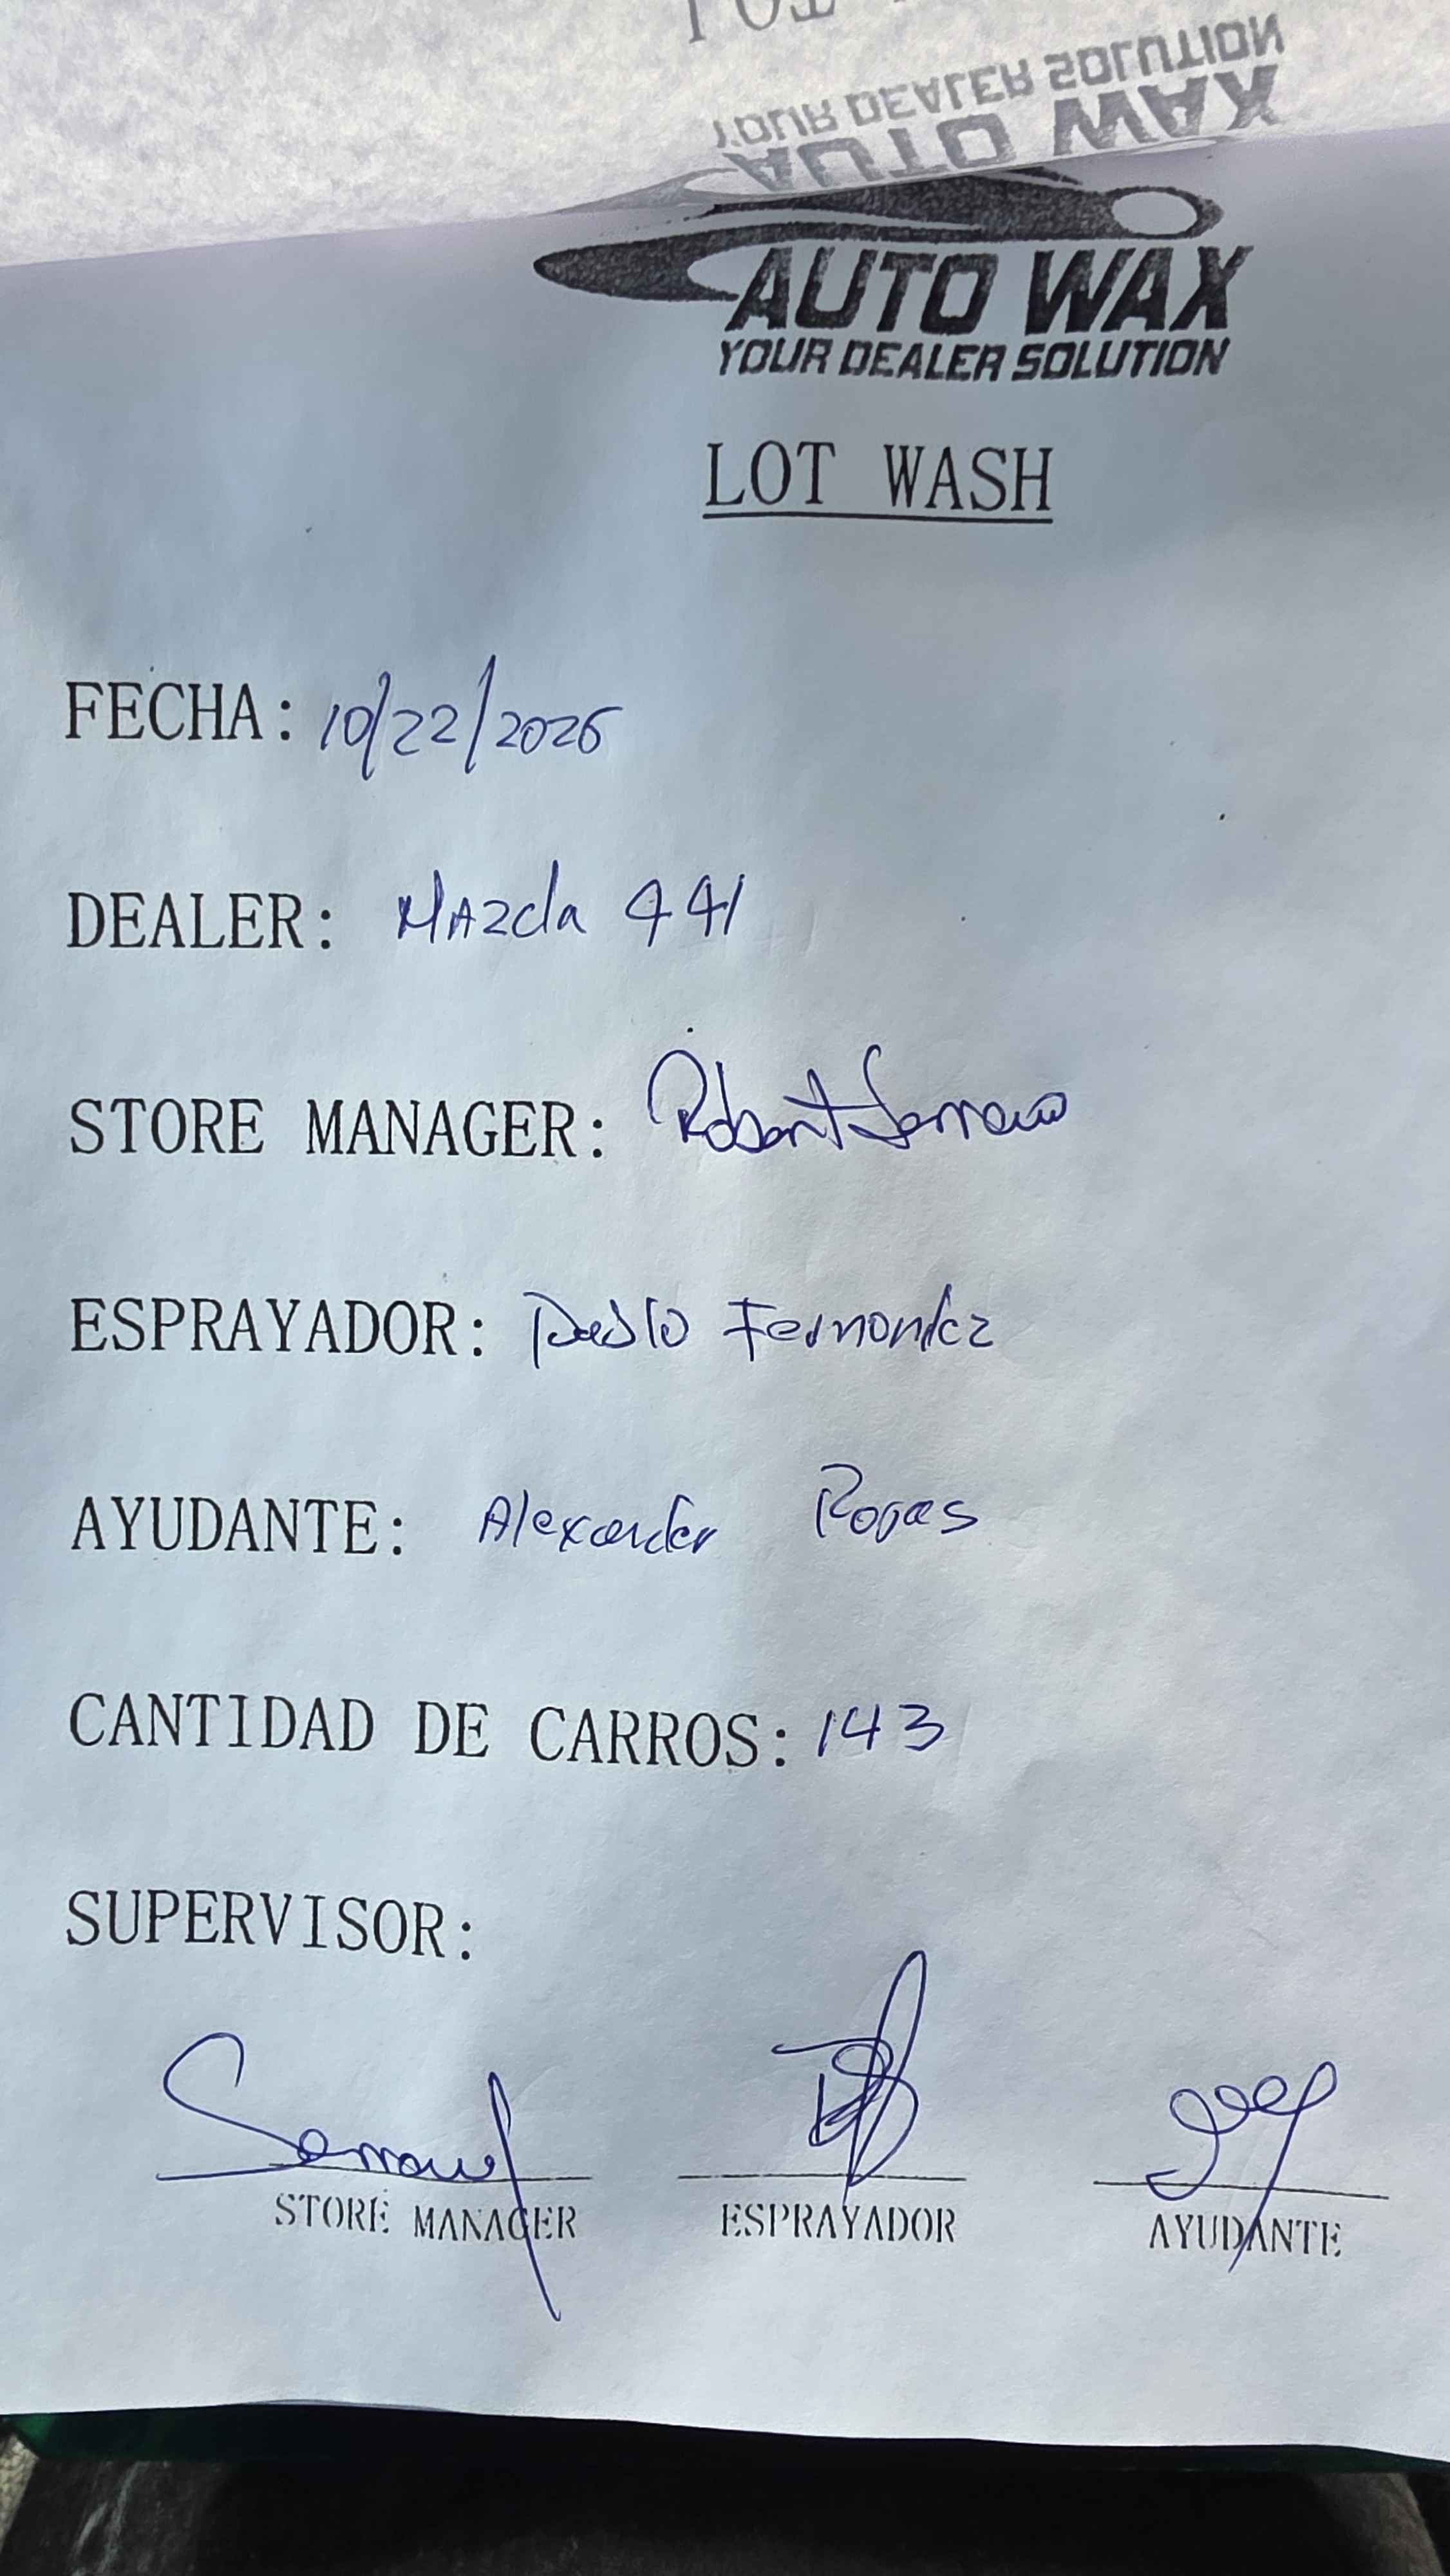 YOUR DEALER SOLUTION
AUTO WAX
AUTO WAX
YOUR DEALER SOLUTION
LOT WASH
FECHA: 10/22/2025
DEALER: Mazda 441
STORE MANAGER: Robert Serrano
ESPRAYADOR: Pablo Fernandez
AYUDANTE: Alexander Rojas
CANTIDAD DE CARROS: 143
SUPERVISOR:
STORE MANAGER ESPRAYADOR AYUDANTE